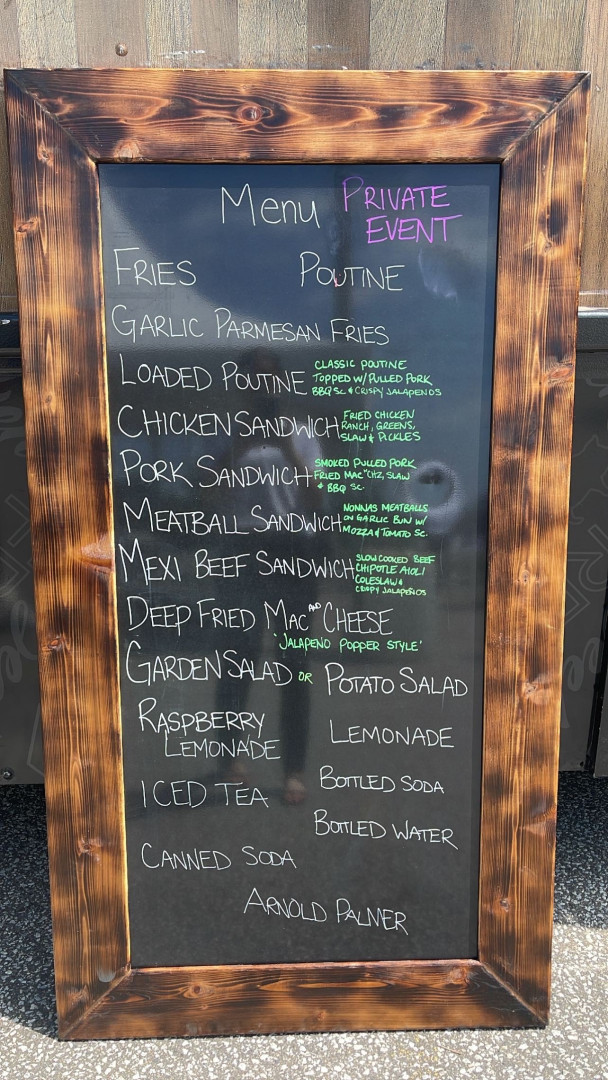 Menu PRIVATE EVENT
FRIES POUTINE
GARLIC PARMESAN FRIES
LOADED POUTINE CLASSIC POUTINE
TOPPED W/ PULLED PORK
BBQ SC & CRISPY JALAPENOS
CHICKEN SANDWICH FRIED CHICKEN
RANCH, GREENS,
SLAW & PICKLES
PORK SANDWICH SMOKED PULLED PORK
FRIED MAC "CHZ, SLAW
& BBQ SC.
MEATBALL SANDWICH NONNAS MEATBALLS
ON GARLIC BUN W/
MOZZA & TOMATO SC.
MEXI BEEF SANDWICH SLOW COOKED BEEF
CHIPOTLE AIOLI
COLESLAW &
CRISPY JALAPEÑOS
DEEP FRIED MAC AND CHEESE
'JALAPENO POPPER STYLE'
GARDEN SALAD OR POTATO SALAD
RASPBERRY
LEMONADE LEMONADE
ICED TEA BOTTLED SODA
BOTTLED WATER
CANNED SODA
ARNOLD PALMER